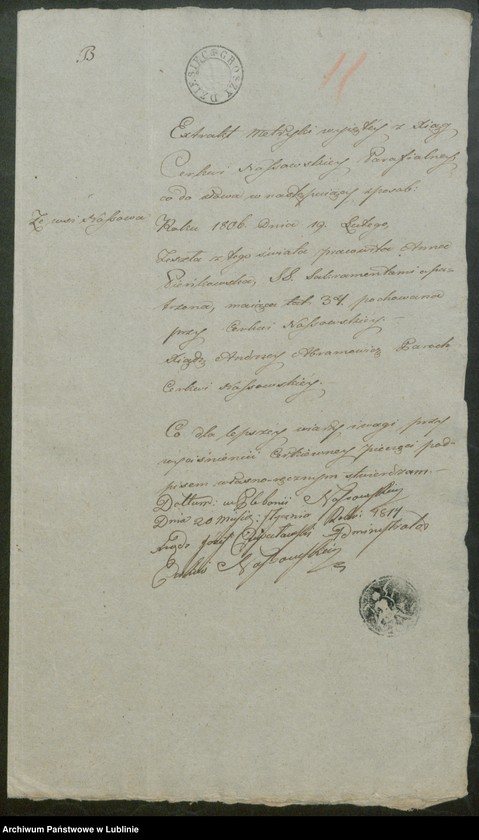 B
DZIESIĘC GROSZY
11
Extrakt Metryki wyięty z Xiąg
Cerkwi Nossowskiey Parafialney
co do słowa w następuiący sposob:
Ze wsi
Roku 1806 Dnia 19 Lutego,
Zeszła z tego świata pracowita Anna
SS. Sakramentami opa-
trzona, maiąca lat 34 pochowana
przy Cerkwi Nossowskiey.
Xiądz Andrzey Abramowicz Paroch
Cerkwi Nossowskiey.
Co dla lepszey wiary i wagi przy
wyciśnieniu Cerkiewney pieczęci pod-
pisem własnoręcznym stwierdzam.
Dattum: w Plebanii Nossowskiey
Dnia 20 Miesca: Stycznia Roku: 1817
Xiądz Józef Administrator
Cerkwi Nossowskiey
Archiwum Państwowe w Lublinie